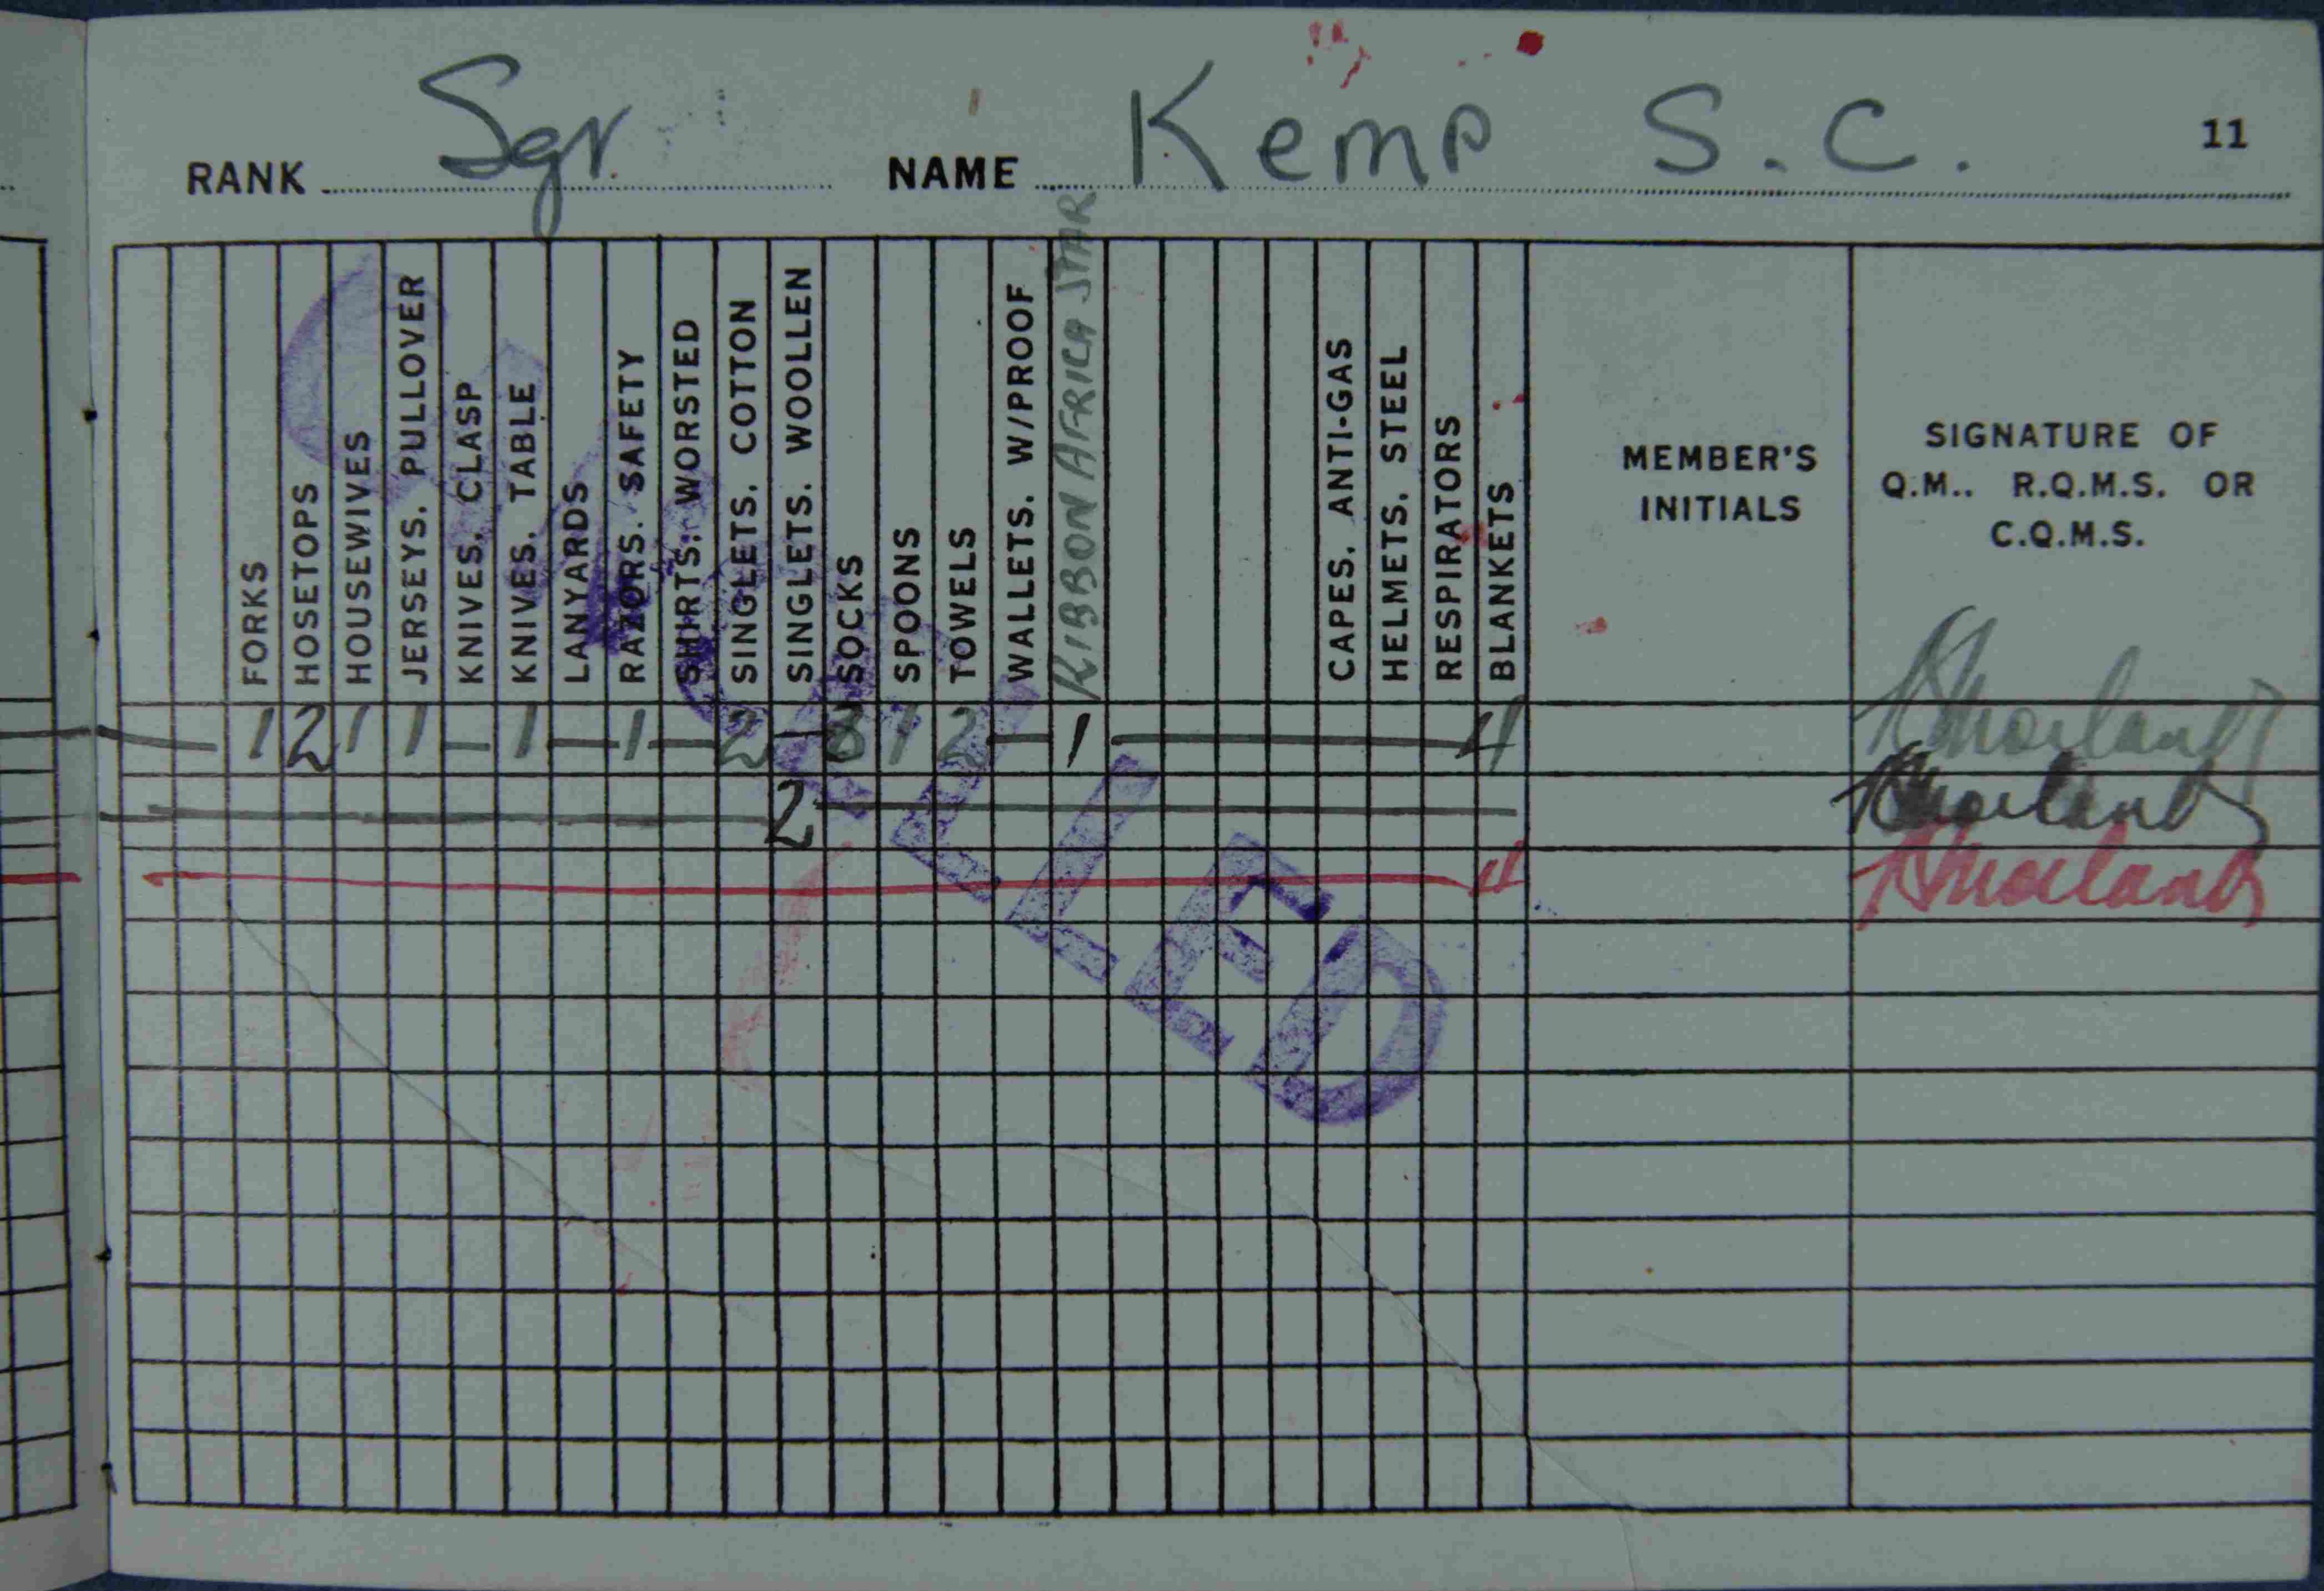 RANK Sgr. NAME Kemp S. C. 11
FORKS
HOSETOPS
HOUSEWIVES
JERSEYS. PULLOVER
KNIVES. CLASP
KNIVES. TABLE
LANYARDS
RAZORS. SAFETY
SHIRTS. WORSTED
SINGLETS. COTTON
SINGLETS. WOOLLEN
SOCKS
SPOONS
TOWELS
WALLETS. W/PROOF
RIBBON AFRICA STAR
CAPES. ANTI-GAS
HELMETS. STEEL
RESPIRATORS
BLANKETS
MEMBER'S
INITIALS
SIGNATURE OF
Q.M.. R.Q.M.S. OR
C.Q.M.S.
1 2 1 1 — 1 — 1 — 2 — 3 1 2 — 1 — 4
2
4
CANCELLED